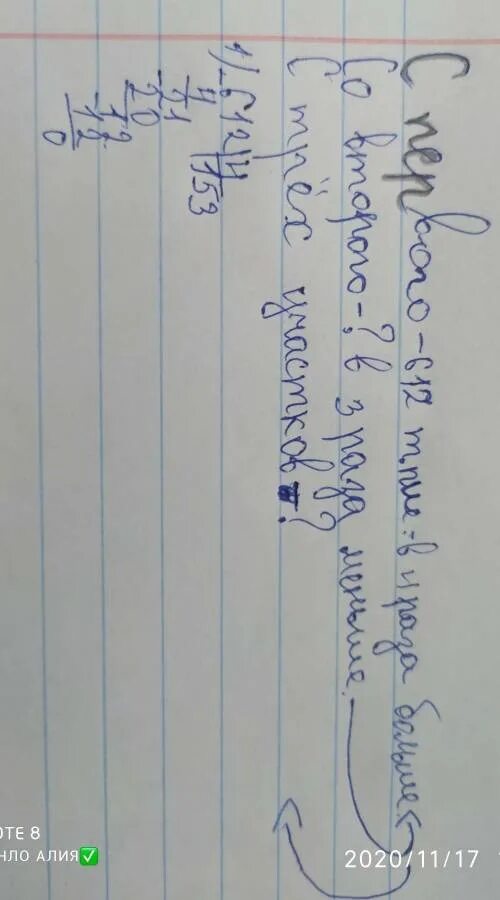 С первого-612 т, пше-в 4 раза больше
Со второго-? в 3 раза меньше.
С трёх участков ?
1) 612|4
4 |153
21
20
12
12
0
OTE 8
НЛО АЛИЯ✅
2020/11/17 1